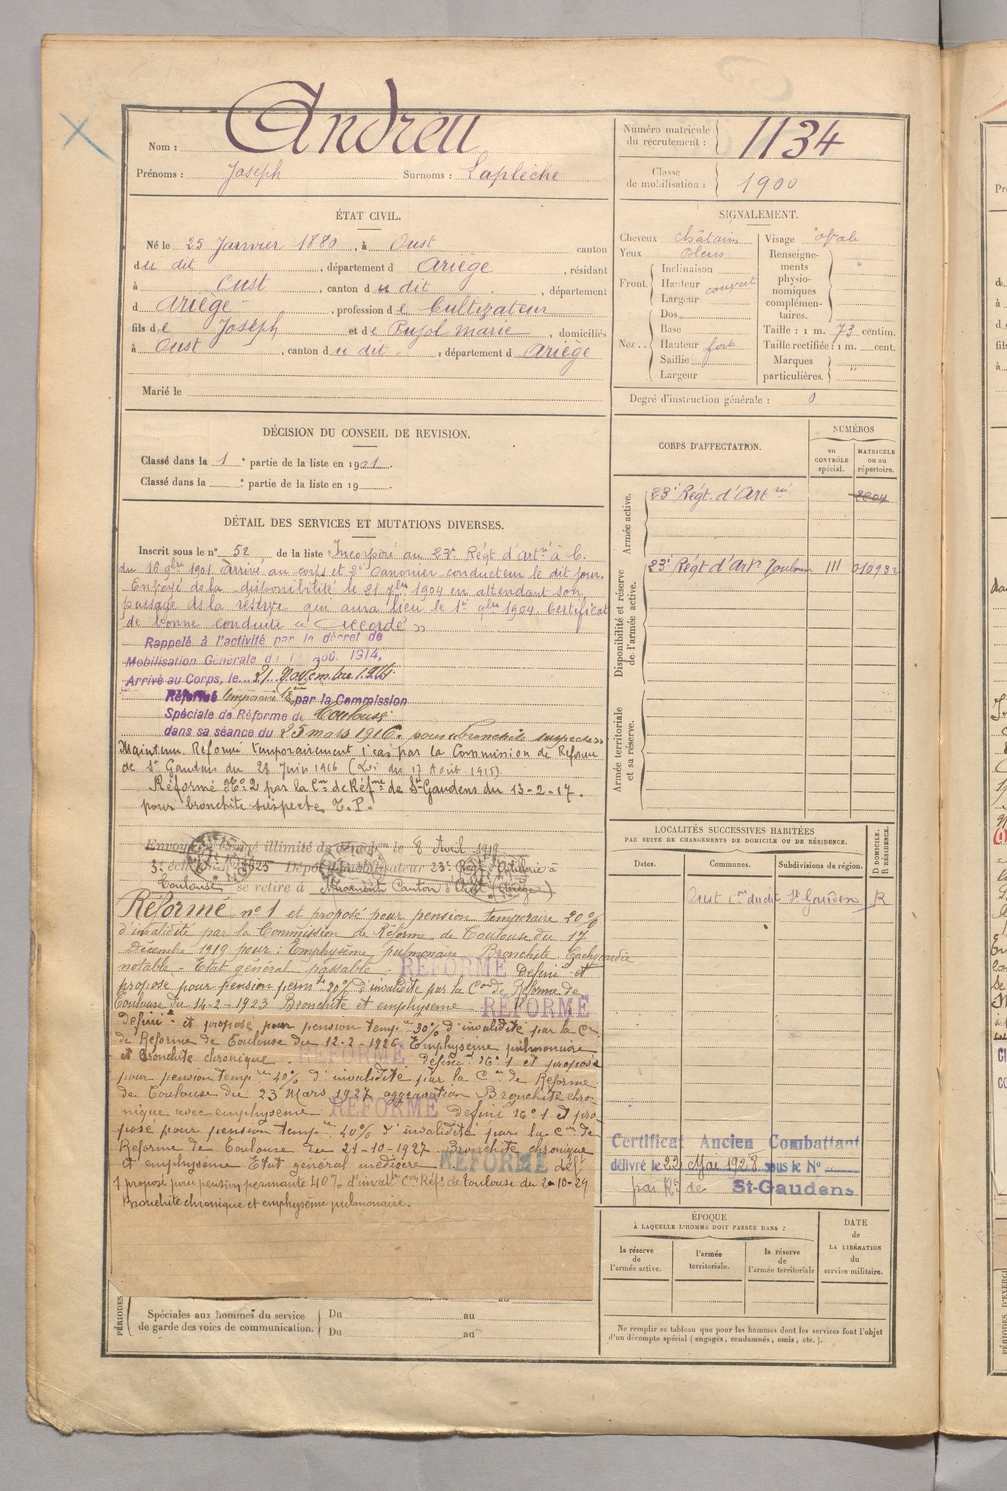 Nom : Andreu
Prénoms : Joseph Surnoms : Laplèche
Numéro matricule du recrutement : 1134
Classe de mobilisation : 1900
ÉTAT CIVIL.
Né le 25 Janvier 1880, à Oust canton
du dit, département d Ariège, résidant
à Oust, canton du dit, département
d Ariège, profession de Cultivateur
fils de Joseph et de Pujol Marie, domiciliés
à Oust, canton du dit, département d Ariège
Marié le
SIGNALEMENT.
Cheveux châtain Visage ovale
Yeux bleus
Renseignements physionomiques complémentaires.
Front. Inclinaison
Hauteur couvert
Largeur
Nez.. Dos
Base
Hauteur fort
Saillie
Largeur
Taille : 1 m. 73 centim.
Taille rectifiée : 1 m. cent.
Marques particulières.
Degré d'instruction générale : 0
DÉCISION DU CONSEIL DE REVISION.
Classé dans la 1e partie de la liste en 1901.
Classé dans la e partie de la liste en 19
CORPS D'AFFECTATION.
NUMÉROS
au CONTRÔLE spécial.
MATRICULE ou au répertoire.
Armée active.
23e Régt. d'Artrie 2204
Disponibilité et réserve de l'armée active.
23e Régt d'Artie Toulouse III
Armée territoriale et sa réserve.
DÉTAIL DES SERVICES ET MUTATIONS DIVERSES.
Inscrit sous le n° 52 de la liste Incorporé au 23e Régt d'artie à C.
du 16 9bre 1901 arrivé au corps et 2e Canonier conducteur le dit jour
Envoyé ds la disponibilité le 21 7bre 1904 en attendant son
passage ds la réserve qui aura lieu le 1er 9bre 1904 Certificat
de bonne conduite « Accordé »
Rappelé à l'activité par le décret de
Mobilisation Générale du 1er août 1914.
Arrivé au Corps, le 21 Novembre 1914
Réformé temporairet par la Commission
Spéciale de Réforme de Toulouse
dans sa séance du 25 mars 1916. pour « bronchite suspecte »
Maintenu Réformé temporairement 1er cas par la Commission de Réforme
de St Gaudens du 28 Juin 1916 (Loi du 17 Août 1915)
Réformé No 2 par la Con de Réfme de St Gaudens du 13-2-17.
pour bronchite suspecte T.P.
Envoyé en congé illimité de démobilisation le 8 Avril 1919
3e échelon Dépôt démobilisateur 23e Régt Artillerie à
Toulouse se retire à Canton d'Oust (Ariège)
Réformé n° 1 et proposé pour pension temporaire 20%
d'invalidité par la Commission de Réforme de Toulouse du 17
Décembre 1919 pour : Emphysème pulmonaire - Bronchite Tachycardie
notable - Etat général passable. RÉFORME Définit et
proposé pour pension perm 20% d'invalidité par la Con de Réforme de
Toulouse du 14-2-1923 Bronchite et emphysème RÉFORME
Définit et proposé pour pension tempre 30% d'invalidité par la Con
de Réforme de Toulouse du 12-2-1926 Emphysème pulmonaire
et Bronchite chronique. RÉFORME Définit No 1 et proposé
pour pension tempre 40% d'invalidité par la Con de Réforme
de Toulouse du 23 Mars 1927 aggravation Bronchite chro-
nique avec emphysème RÉFORME Définit No 1 et pro
posé pour pension tempre 40% d'invalidité par la Con de
Réforme de Toulouse du 21-10-1927 Bronchite chronique
et emphysème Etat général médiocre RÉFORME déft
1 proposé pour pension permanente 40% d'invalté Con Réfe de Toulouse du 2-10-29
Bronchite chronique et emphysème pulmonaire.
LOCALITÉS SUCCESSIVES HABITÉES
PAR SUITE DE CHANGEMENTS DE DOMICILE OU DE RÉSIDENCE.
Dates. Communes. Subdivisions de région. D DOMICILE. R RÉSIDENCE.
Oust con du dit St Gaudens R
Certificat Ancien Combattant
délivré le 22 Mai 1928 sous le No
par Rt de St-Gaudens
ÉPOQUE
À LAQUELLE L'HOMME DOIT PASSER DANS :
la réserve de l'armée active.
l'armée territoriale.
la réserve de l'armée territoriale
DATE de LA LIBÉRATION du service militaire.
PÉRIODES
Spéciales aux hommes du service de garde des voies de communication.
Du au
Du au
Ne remplir ce tableau que pour les hommes dont les services font l'objet
d'un décompte spécial (engagés, condamnés, omis, etc.).